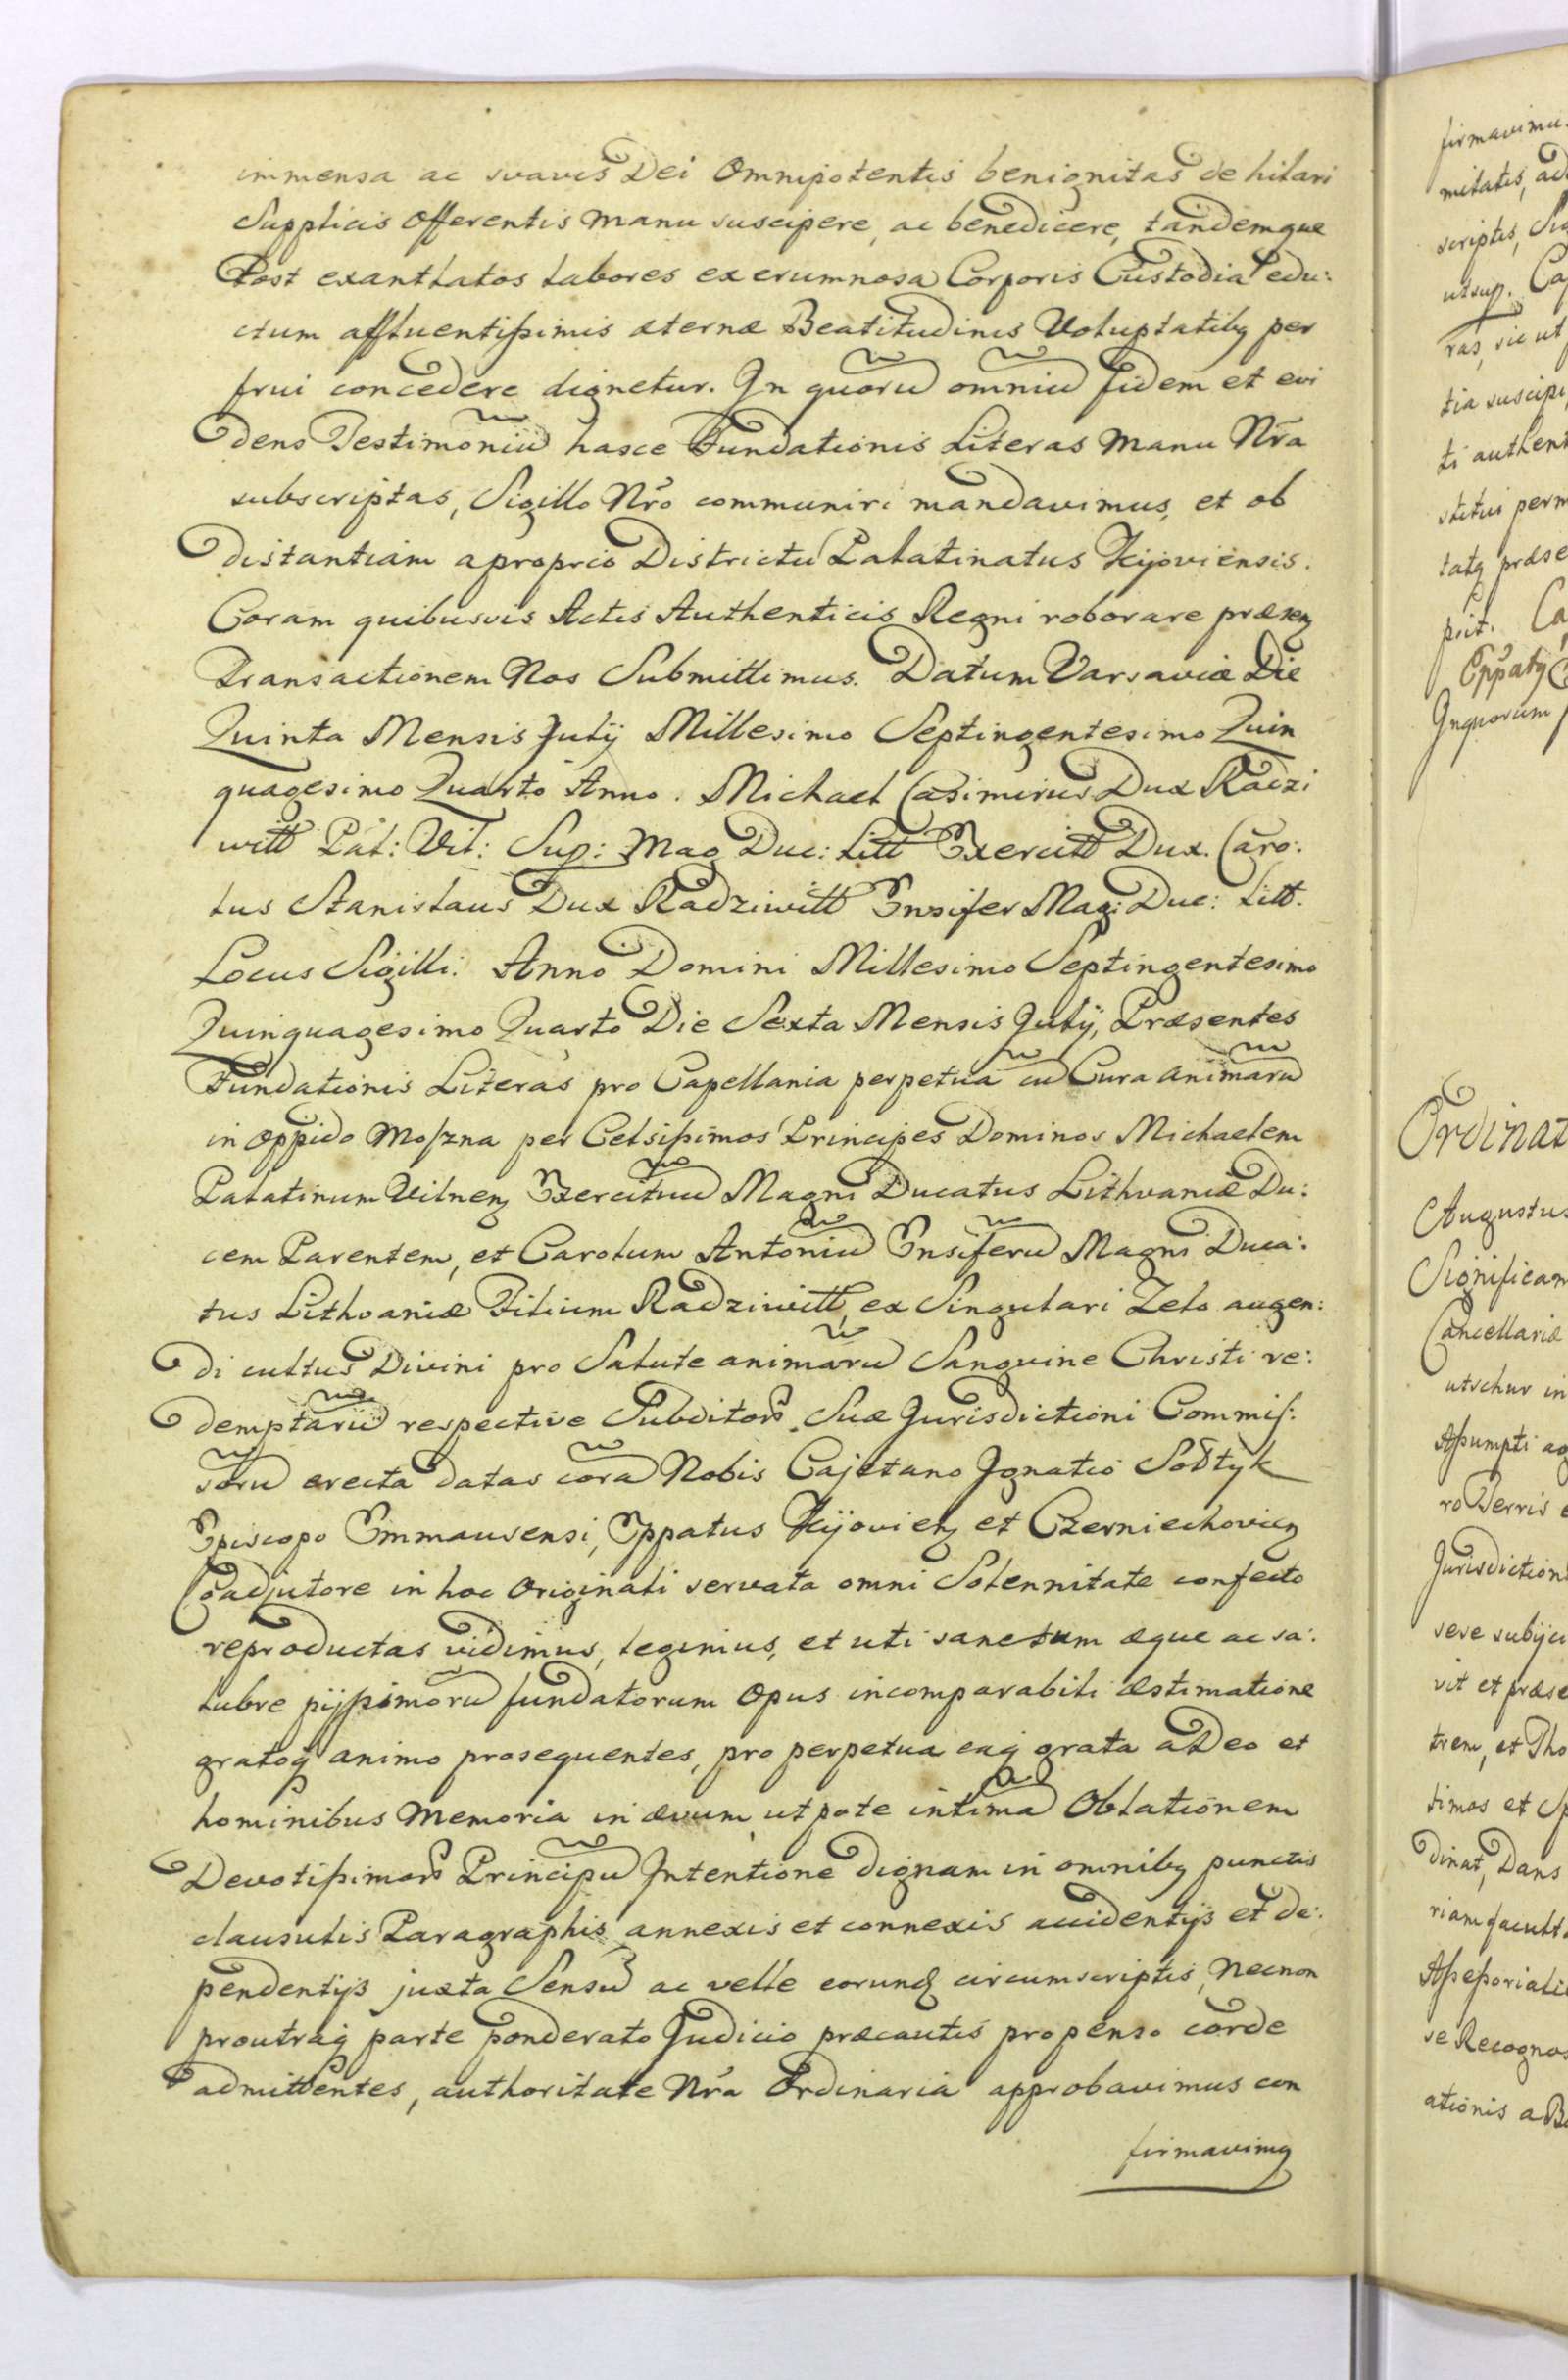 immensa ac suavis Dei Omnipotentis benignitas de hilari
Supplicis Offerentis manu suscipere, ac benedicere, tandemque
Post exanthlatos labores ex erumnosa Corporis Custodia edu:
ctum affluentißimis æternæ Beatitudinis Voluptatibq per
frui concedere dignetur. In quorũ omniũ fidem et evi
dens Testimoniũ hasce Fundationis Literas manu Nr̃a
subscriptas, Sigillo Nr̃o communiri mandavimus, et ob
distantiam a proprio Districtu Palatinatus Kijoviensis.
Coram quibusvis Actis Authenticis Regni roborare præsenq
Transactionem Nos Submittimus. Datum Varsaviæ Die
Quinta Mensis Julij Millesimo Septingentesimo Quin
quagesimo Quarto Anno. Michael Casimirus Dux Radzi
wiłł Pal: Vil: Sup: Mag Duc: Litt Exercitt Dux. Caro:
lus Stanislaus Dux Radziwiłł Ensifer Mag: Duc: Litt.
Locus Sigilli. Anno Domini Millesimo Septingentesimo
Quinquagesimo Quarto Die Sexta Mensis Julij, Præsentes
Fundationis Literas pro Capellania perpetua cũ Cura animarũ
in Oppido Moszna per Celsißimos Principes Dominos Michaelem
Palatinum Vilnenq Exercituũ Magni Ducatus Lithvaniæ Du:
cem Parentem, et Carolum Antoniũ Ensiferũ Magni Duca:
tus Lithvaniæ Filium Radziwiłł, ex Singulari Zelo augen:
di cultus Divini pro Salute animarũ Sanguine Christi re:
demptarũ respective Subditorũ Suæ Jurisdictioni Commis:
sorũ erecta datas corã Nobis Cajetano Ignatio Sołtyk
Episcopo Emmausensi, Eppatus Kijovienq et Czerniechovienq
Coadjutore in hoc Originali servata omni Solennitate confecto
reproductas vidimus, legimus, et uti sanctum æque ac sa:
lubre pijßimorũ fundatorum Opus incomparabili æstimatione
gratoq animo prosequentes, pro perpetua eaq grata a Deo et
hominibus Memoria in ævum, utpote intimã Oblationem
Devotißimorũ Principũ Intentione dignam in omnibq punctis
clausulis Paragraphis annexis et connexis accidentijs et de:
pendentijs juxta Sensũ ac velle eorundq circumscriptis, Necnon
pro utraq parte ponderato Judicio præcautis propenso corde
admittentes, authoritate Nr̃a Ordinaria approbavimus con
firmavimq
firmavimu
mitatis,
scriptis,
utsup.
ras, sic ut
tia suscipi
ti authent
stitui perm
tatq præse
Eppatq
Inquorum
Ordinat
Augustus
Significan
Cancellariæ
Aßumpti
ro Terris
Jurisdiction
sese subijci
vit et præse
trem, et Tho
simos et
dinat, Dans
riam facult
se Recognos
ationis a